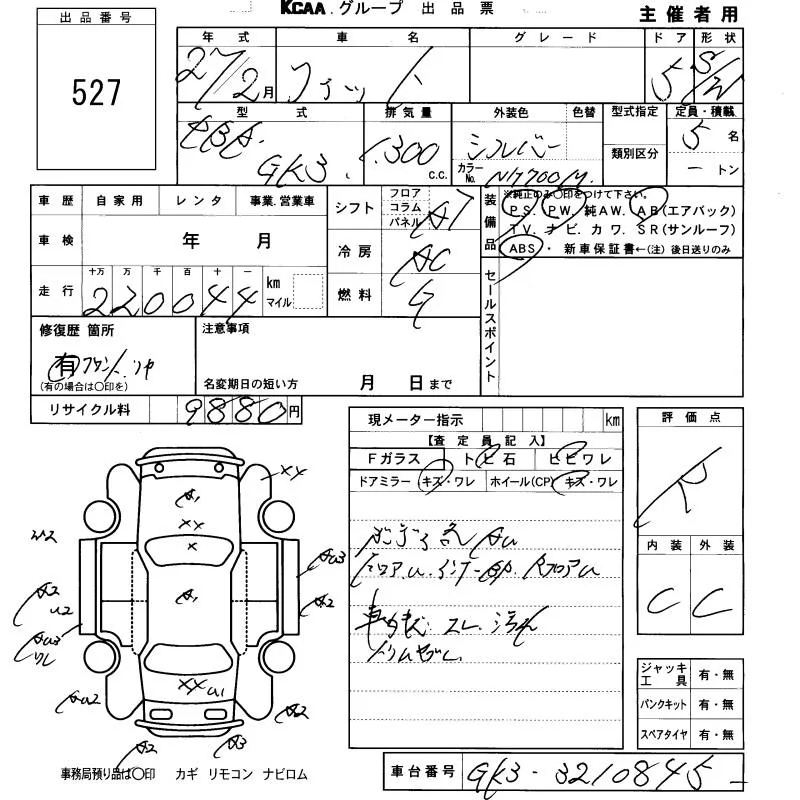 KCAA.グループ 出品票
主催者用
出品番号
527
年式 車名 グレード ドア 形状
27/2月 フィット 5 S/W
型式 排気量 外装色 色替 型式指定 定員・積載
DBA GK3 1.300 c.c. シルバー 5名
カラーNo. NH700M 類別区分 ートン
車歴 自家用 レンタ 事業.営業車
車検 年 月
走行 十万 万 千 百 十 一
220044 km マイル
シフト フロア コラム パネル AT
冷房 AC
燃料 G
装備品
※純正のみ〇印をつけて下さい。
PS. PW. 純AW. AB(エアバック)
TV. ナビ. カワ. SR(サンルーフ)
ABS・ 新車保証書←(注)後日送りのみ
セールスポイント
修復歴 箇所
有 フロント.リヤ
(有の場合は〇印を)
注意事項
名変期日の短い方 月 日まで
リサイクル料 9880円
現メーター指示 km
【査定員記入】
Fガラス トビ石 ヒビワレ
ドアミラー キズ・ワレ ホイール(CP) キズ・ワレ
スレ.汚れ
評価点
R
内装 外装
C C
ジャッキ工具 有・無
パンクキット 有・無
スペアタイヤ 有・無
XX
A1
XX
X
A1
XX U1
U2
A2
U2
AU3
ワレ
AU2
A2
A3
A2
AU3
A2
事務局預り品は〇印 カギ リモコン ナビロム
車台番号 GK3-3210845